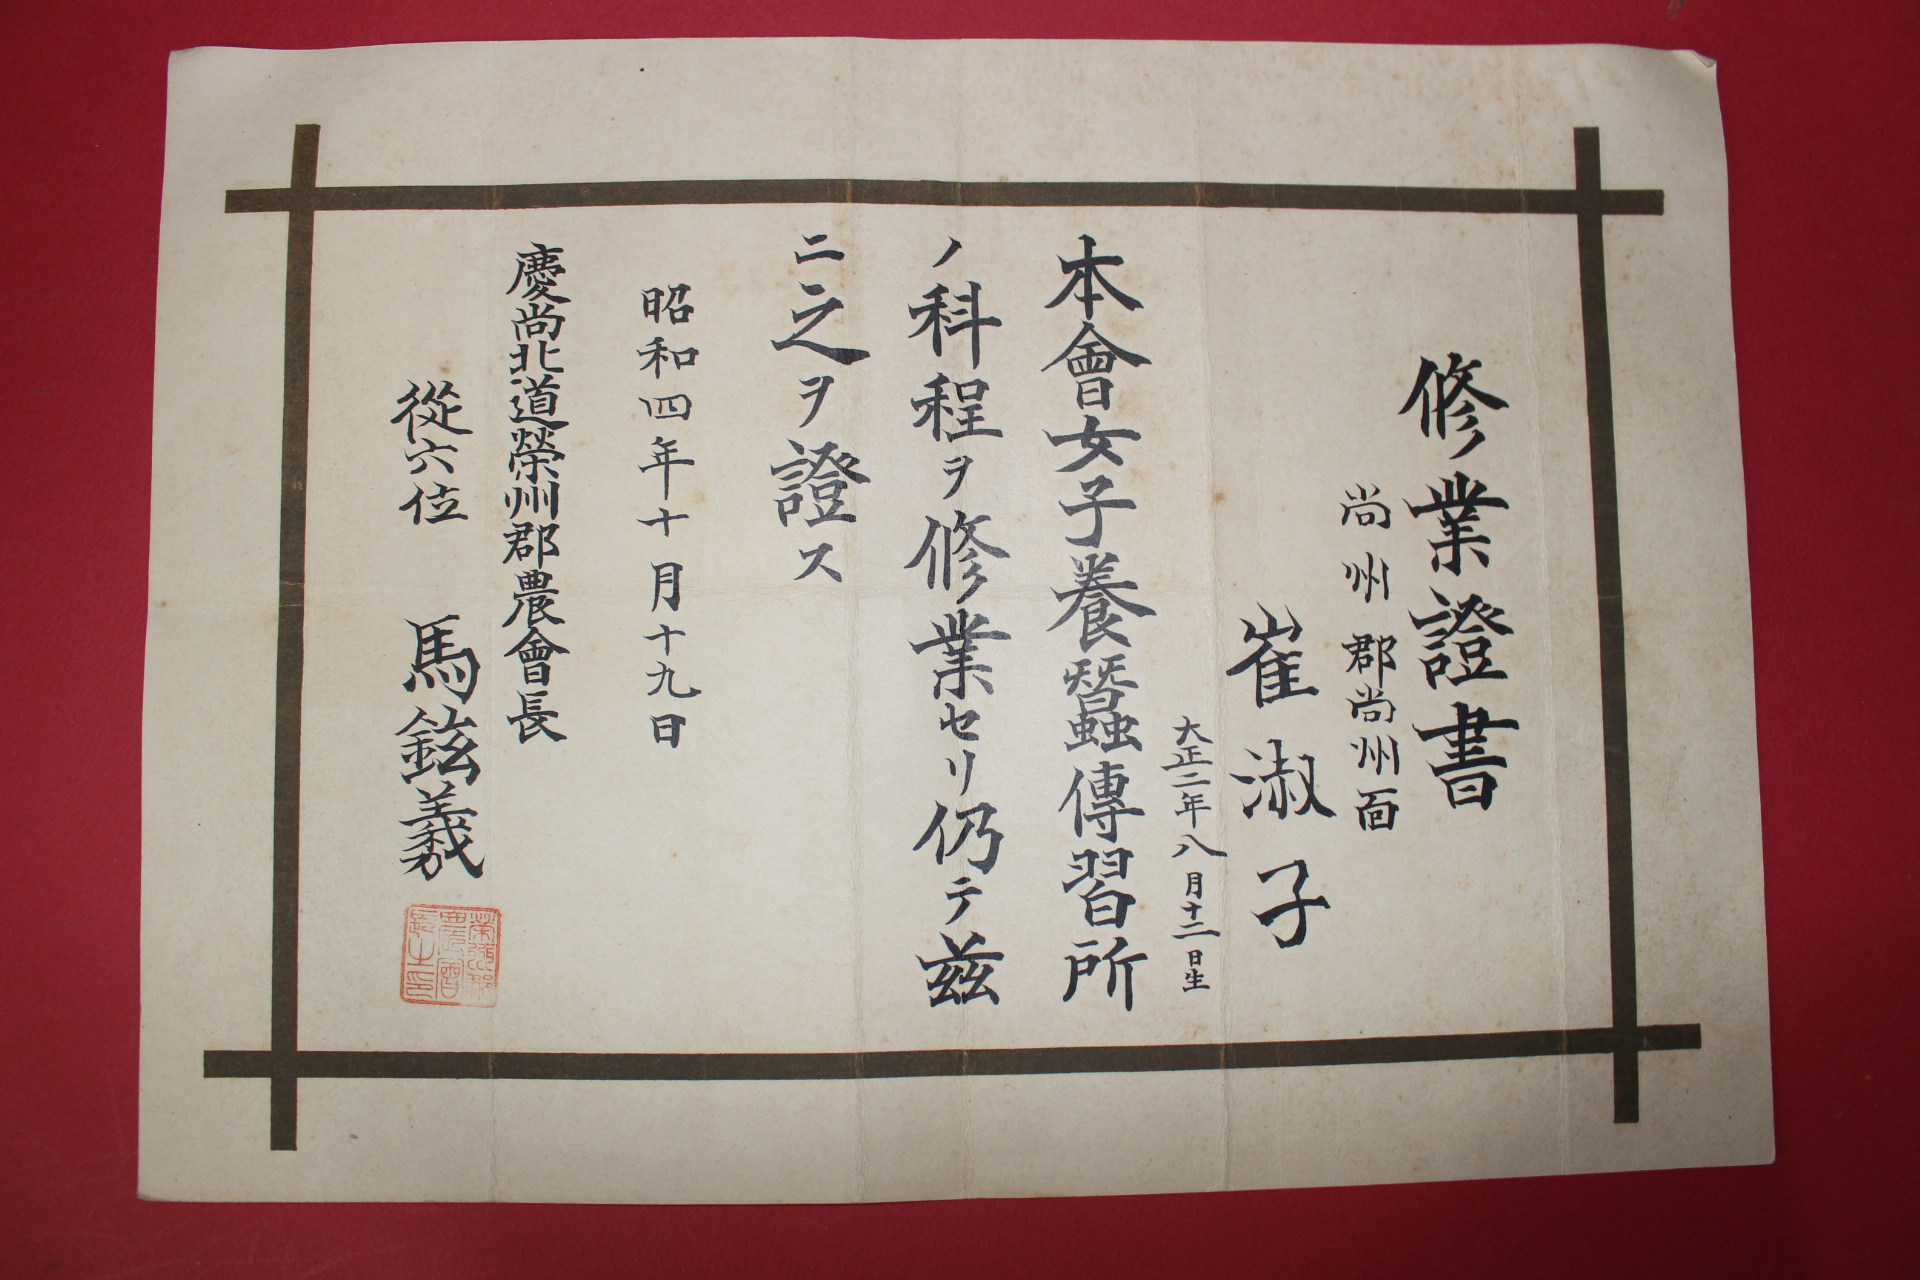 修業證書
尚州郡尚州面
崔淑子
大正二年八月十二日生
本會女子養蠶傳習所
ノ科程ヲ修業セリ仍テ茲
ニ之ヲ證ス
昭和四年十月十九日
慶尚北道榮州郡農會長
從六位 馬鉉義
榮州郡
農會
長之印